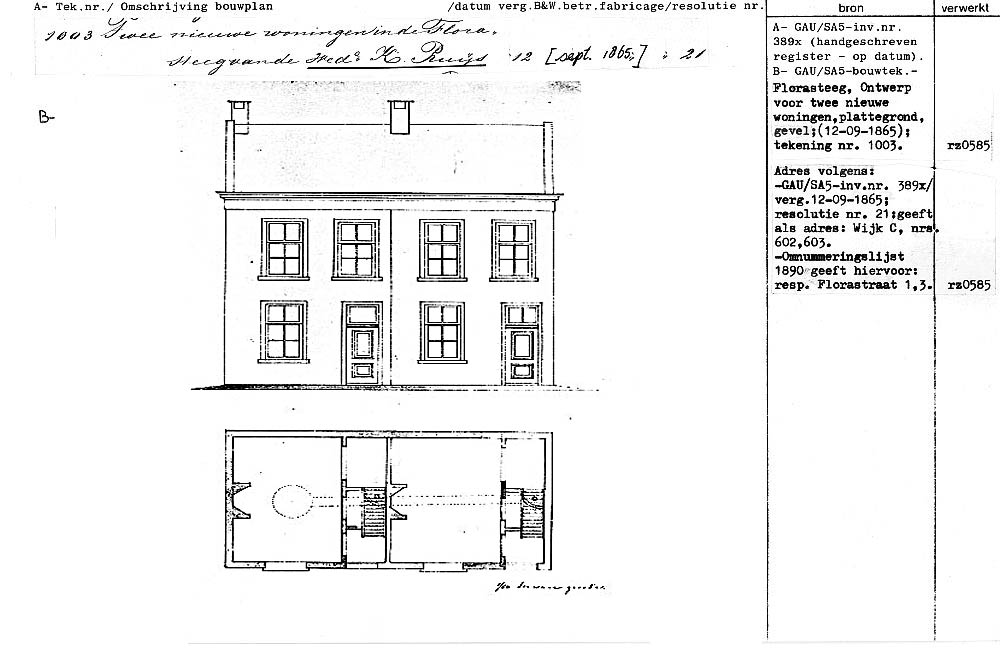 A- Tek.nr./ Omschrijving bouwplan /datum verg.B&W.betr.fabricage/resolutie nr.
1003 Twee nieuwe woningen in de Flora.
Steeg van de Wed: K. Ruijs 12 [sept. 1865;] : 21
B-
bron
verwerkt
A- GAU/SA5-inv.nr.
389x (handgeschreven
register - op datum).
B- GAU/SA5-bouwtek.-
Florasteeg, Ontwerp
voor twee nieuwe
woningen,plattegrond,
gevel;(12-09-1865);
tekening nr. 1003. rz0585
Adres volgens:
-GAU/SA5-inv.nr. 389x/
verg.12-09-1865;
resolutie nr. 21;geeft
als adres: Wijk C, nrs.
602,603.
-Omnummeringslijst
1890 geeft hiervoor:
resp. Florastraat 1,3. rz0585